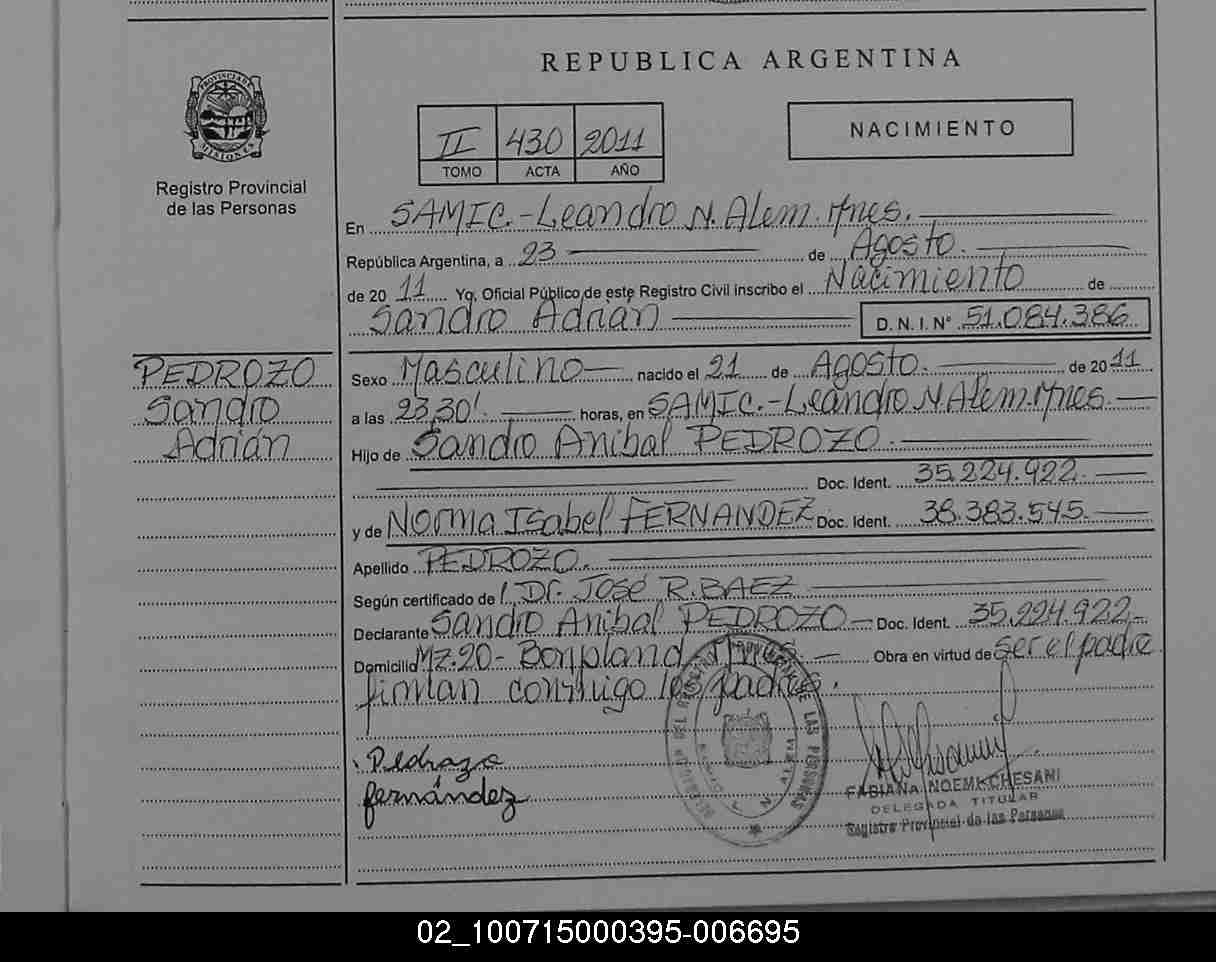 REPUBLICA ARGENTINA
PROVINCIA DE
MISIONES
Registro Provincial
de las Personas
II 430 2011
TOMO ACTA AÑO
NACIMIENTO
En SAMIC.-Leandro N. Alem. Mnes.
República Argentina, a 23 de Agosto.
de 20 11 Yo, Oficial Público de este Registro Civil inscribo el Nacimiento de
Sandro Adrián D. N. I. Nº 51.084.386
PEDROZO
Sandro
Adrián
Sexo Masculino nacido el 21 de Agosto. de 2011
a las 23,30'. horas, en SAMIC.-Leandro N Alem. Mnes.
Hijo de Sandro Anibal PEDROZO.
Doc. Ident. 35.224.922
y de Norma Isabel FERNANDEZ Doc. Ident. 38.383.545
Apellido PEDROZO.
Según certificado de Dr. José R. BAEZ
Declarante Sandro Anibal PEDROZO Doc. Ident. 35.224.922-
Domicilio Mz.20- Bonpland Mnes. Obra en virtud de ser el padre
firman conmigo los padres.
Pedrozo
fernández
FABIANA NOEMI CHESANI
DELEGADA TITULAR
Registro Provincial de las Personas
DE LAS PERSONAS
N. ALEM
02_100715000395-006695